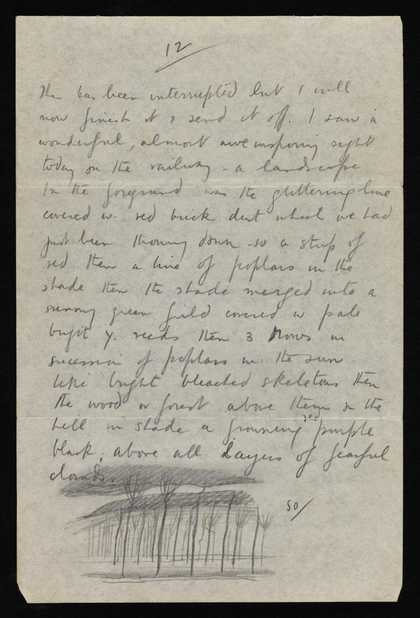 12
This has been interrupted but I will
now finish it & send it off. I saw a
wonderful, almost awe inspiring sight
today on the railway - a landscape
In the foreground was the glittering line
covered w. red brick dust which we had
just been throwing down so a strip of
red then a line of poplars in the
shade then the shade merged into a
sunny green field covered w pale
bright y. reeds then 3 rows in
succession of poplars in the sun
like bright bleached skeletons then
the wood or forest above them on the
hill in shade a frowning red purple
black, above all layers of fearful
clouds.
so/